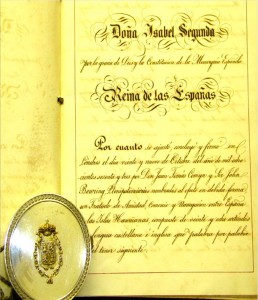 Doña Isabel Segunda
por la gracia de Dios y la Constitucion de la Monarquia Española
Reina de las Españas
Por cuanto se ajustó, concluyó y firmó en
Londres el dia veinte y nueve de Octubre del año de mil ocho-
cientos sesenta y tres por Don Juan Tomás Comyn y Sir John
Bowring Plenipotenciarios nombrados al efecto en debida forma
un Tratado de Amistad, Comercio y Navegacion entre España
y las Islas Hawaianas, compuesto de veinte y ocho artículos
en lengua castellana é inglesa que palabra por palabra
el tenor siguiente.